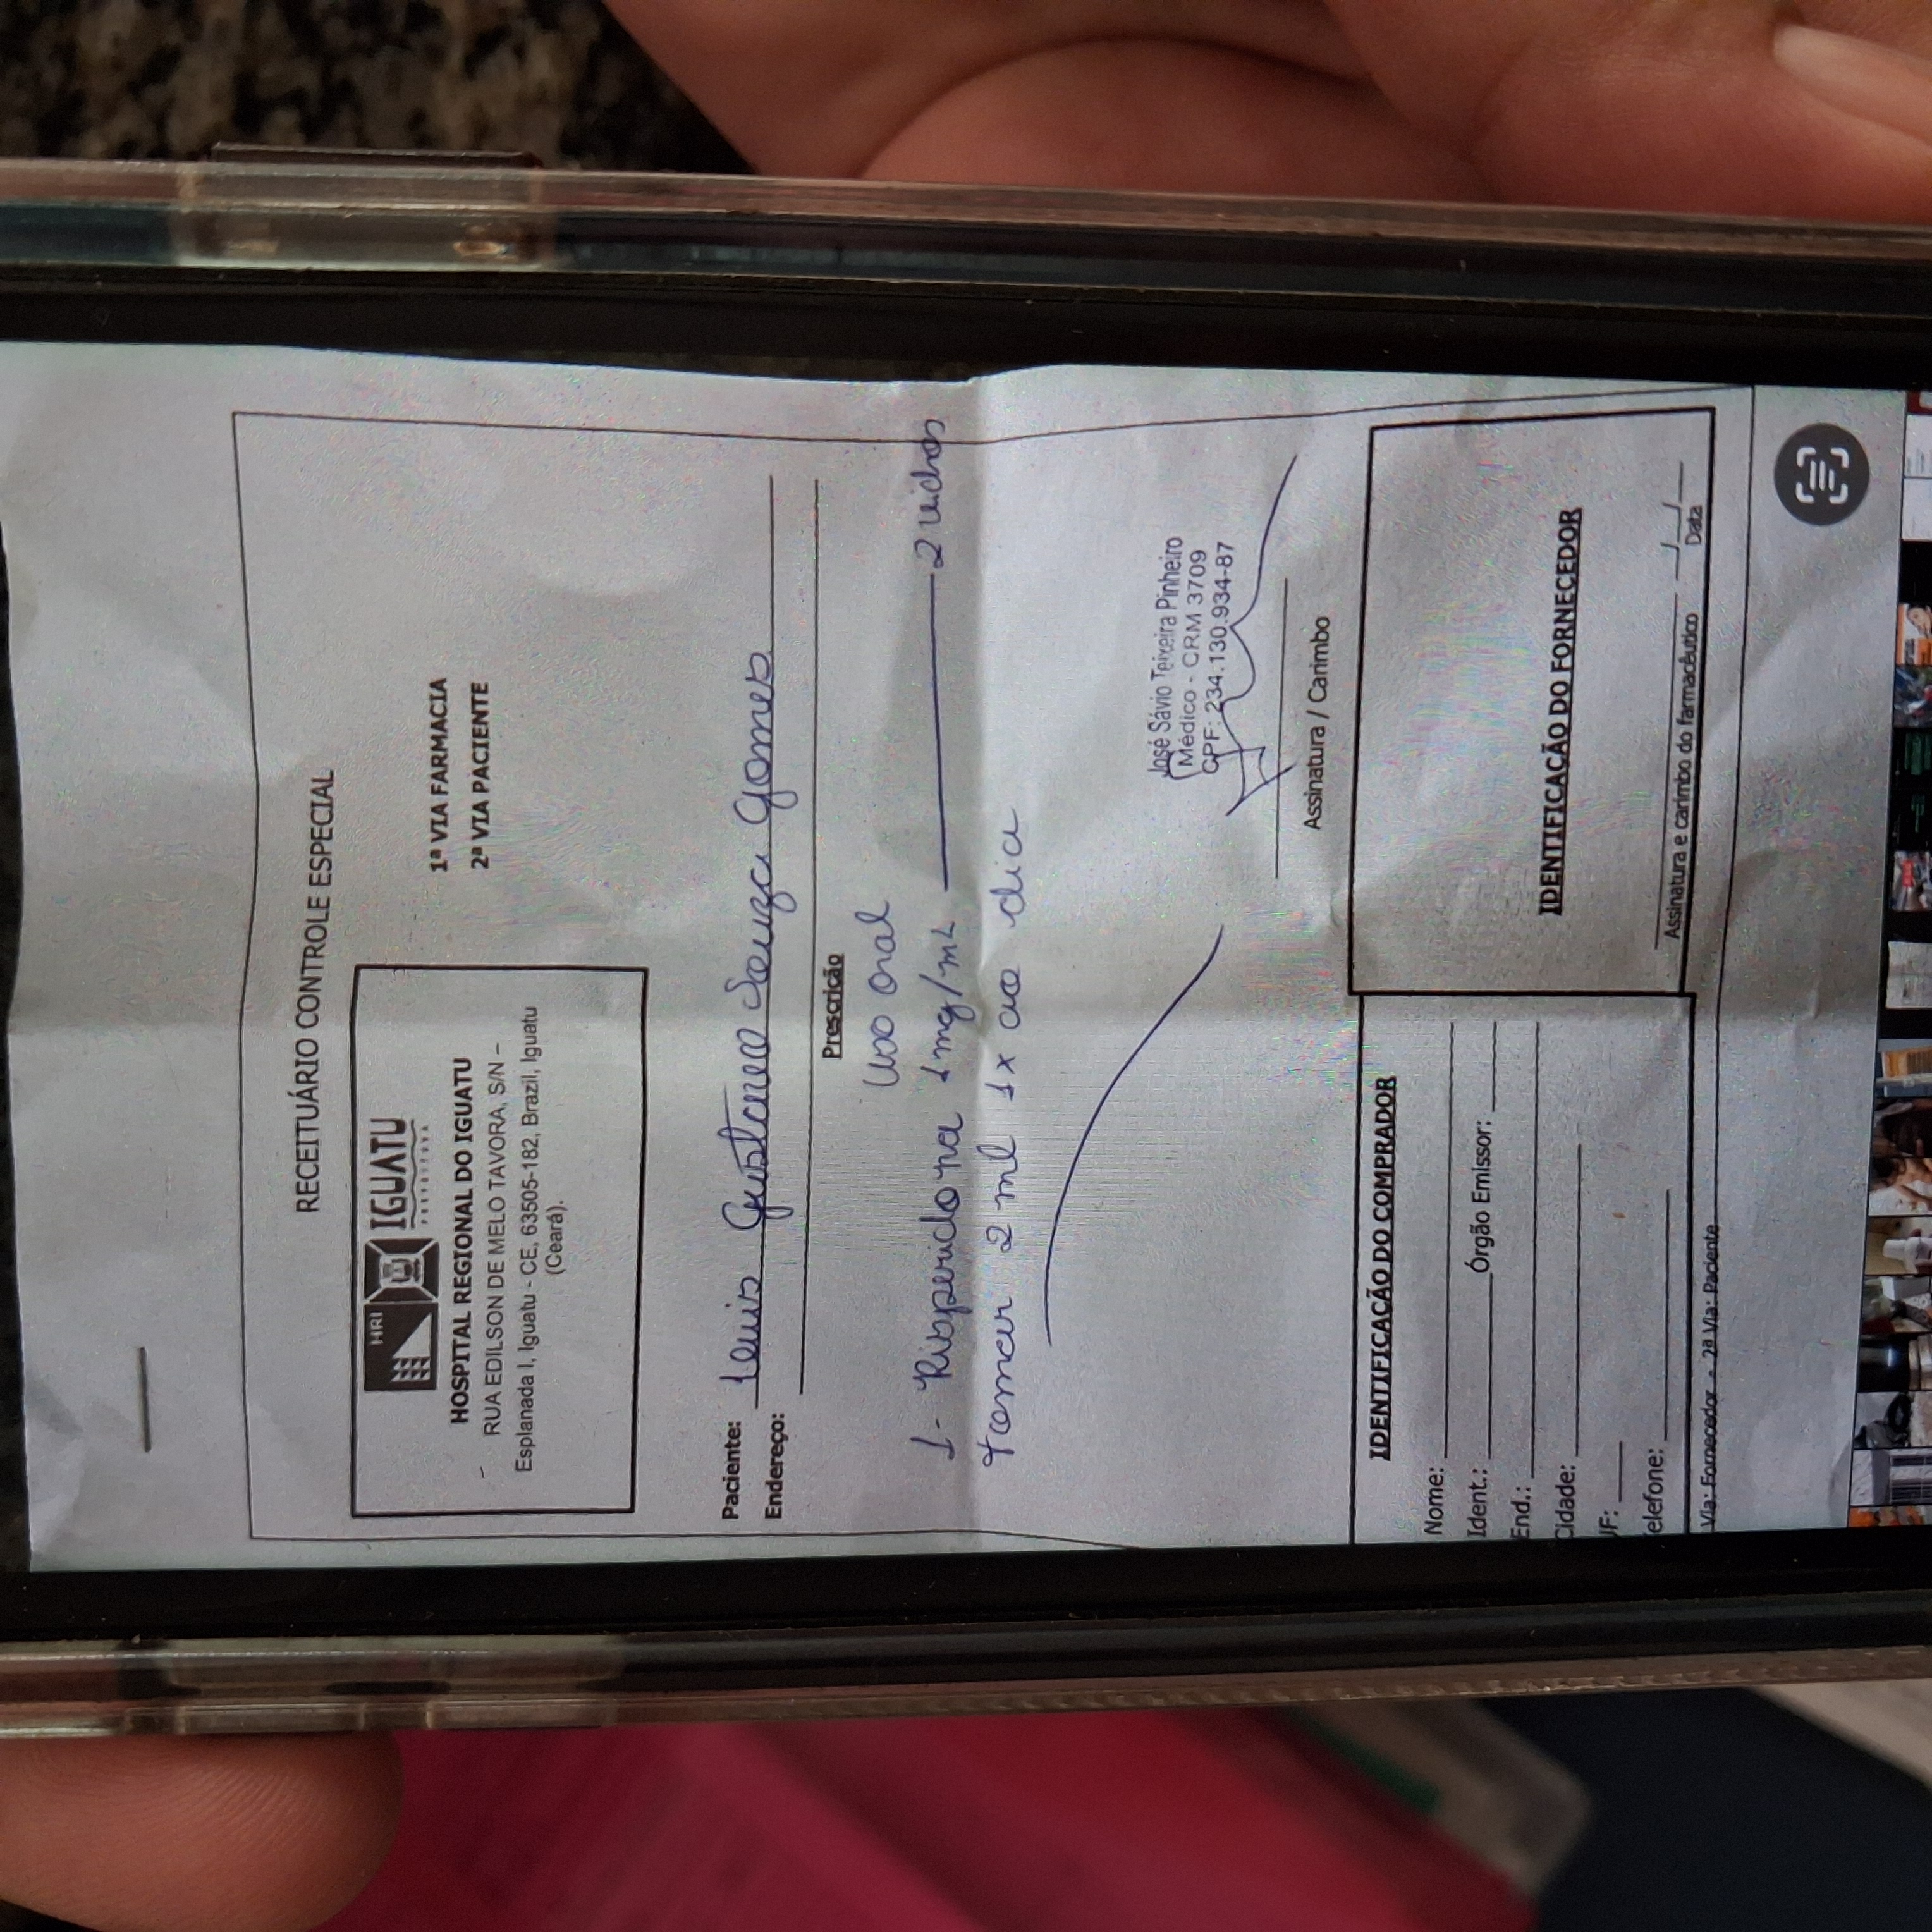 RECEITUÁRIO CONTROLE ESPECIAL
HRI
IGUATU
PREFEITURA
HOSPITAL REGIONAL DO IGUATU
RUA EDILSON DE MELO TAVORA, S/N –
Esplanada I, Iguatu - CE, 63505-182, Brazil, Iguatu
(Ceará).
1ª VIA FARMACIA
2ª VIA PACIENTE
Paciente: Luis Gustavo Souza Gomes
Endereço:
Prescricão
Uso oral
1- Risperidona 1mg/mL 2 vidros
tomar 2 ml 1x ao dia
José Sávio Teixeira Pinheiro
Médico - CRM 3709
CPF: 234.130.934-87
Assinatura / Carimbo
IDENTIFICAÇÃO DO COMPRADOR
Nome:
Ident.: Órgão Emissor:
End.:
Cidade:
UF:
elefone:
IDENTIFICAÇÃO DO FORNECEDOR
Assinatura e carimbo do farmacêutico
Data
Via: Fornecedor - 2ª Via: Paciente